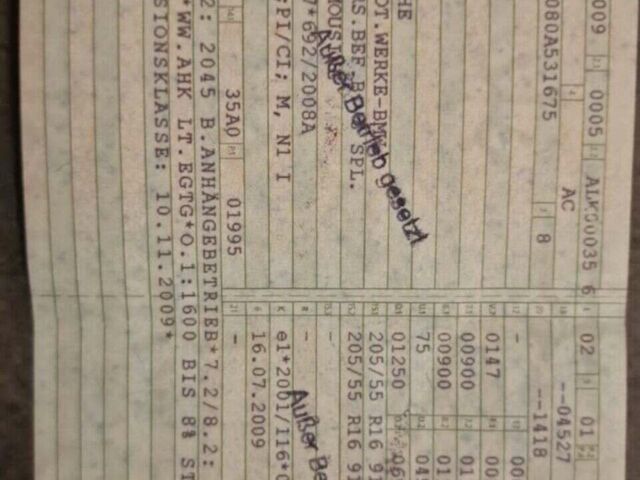 009 0005 ALK00035 6 02 01
AC --04527
080A531675 8 --1418
- 00
0147 00
00900 01
00900 01
75 04
HE 01250 06
OT.WERKE-BMW 205/55 R16 91
S.BEF.B SPL. 205/55 R16 91
-
7*692/2008A -
:PI/CI; M, N1 I e1*2001/116*0
16.07.2009
35A0 01995 -
2: 2045 B.ANHÄNGEBETRIEB*7.2/8.2:
*WW.AHK LT.EGTG*O.1:1600 BIS 8% ST
SIONSKLASSE: 10.11.2009*
Außer Betrieb gesetzt
Außer Be